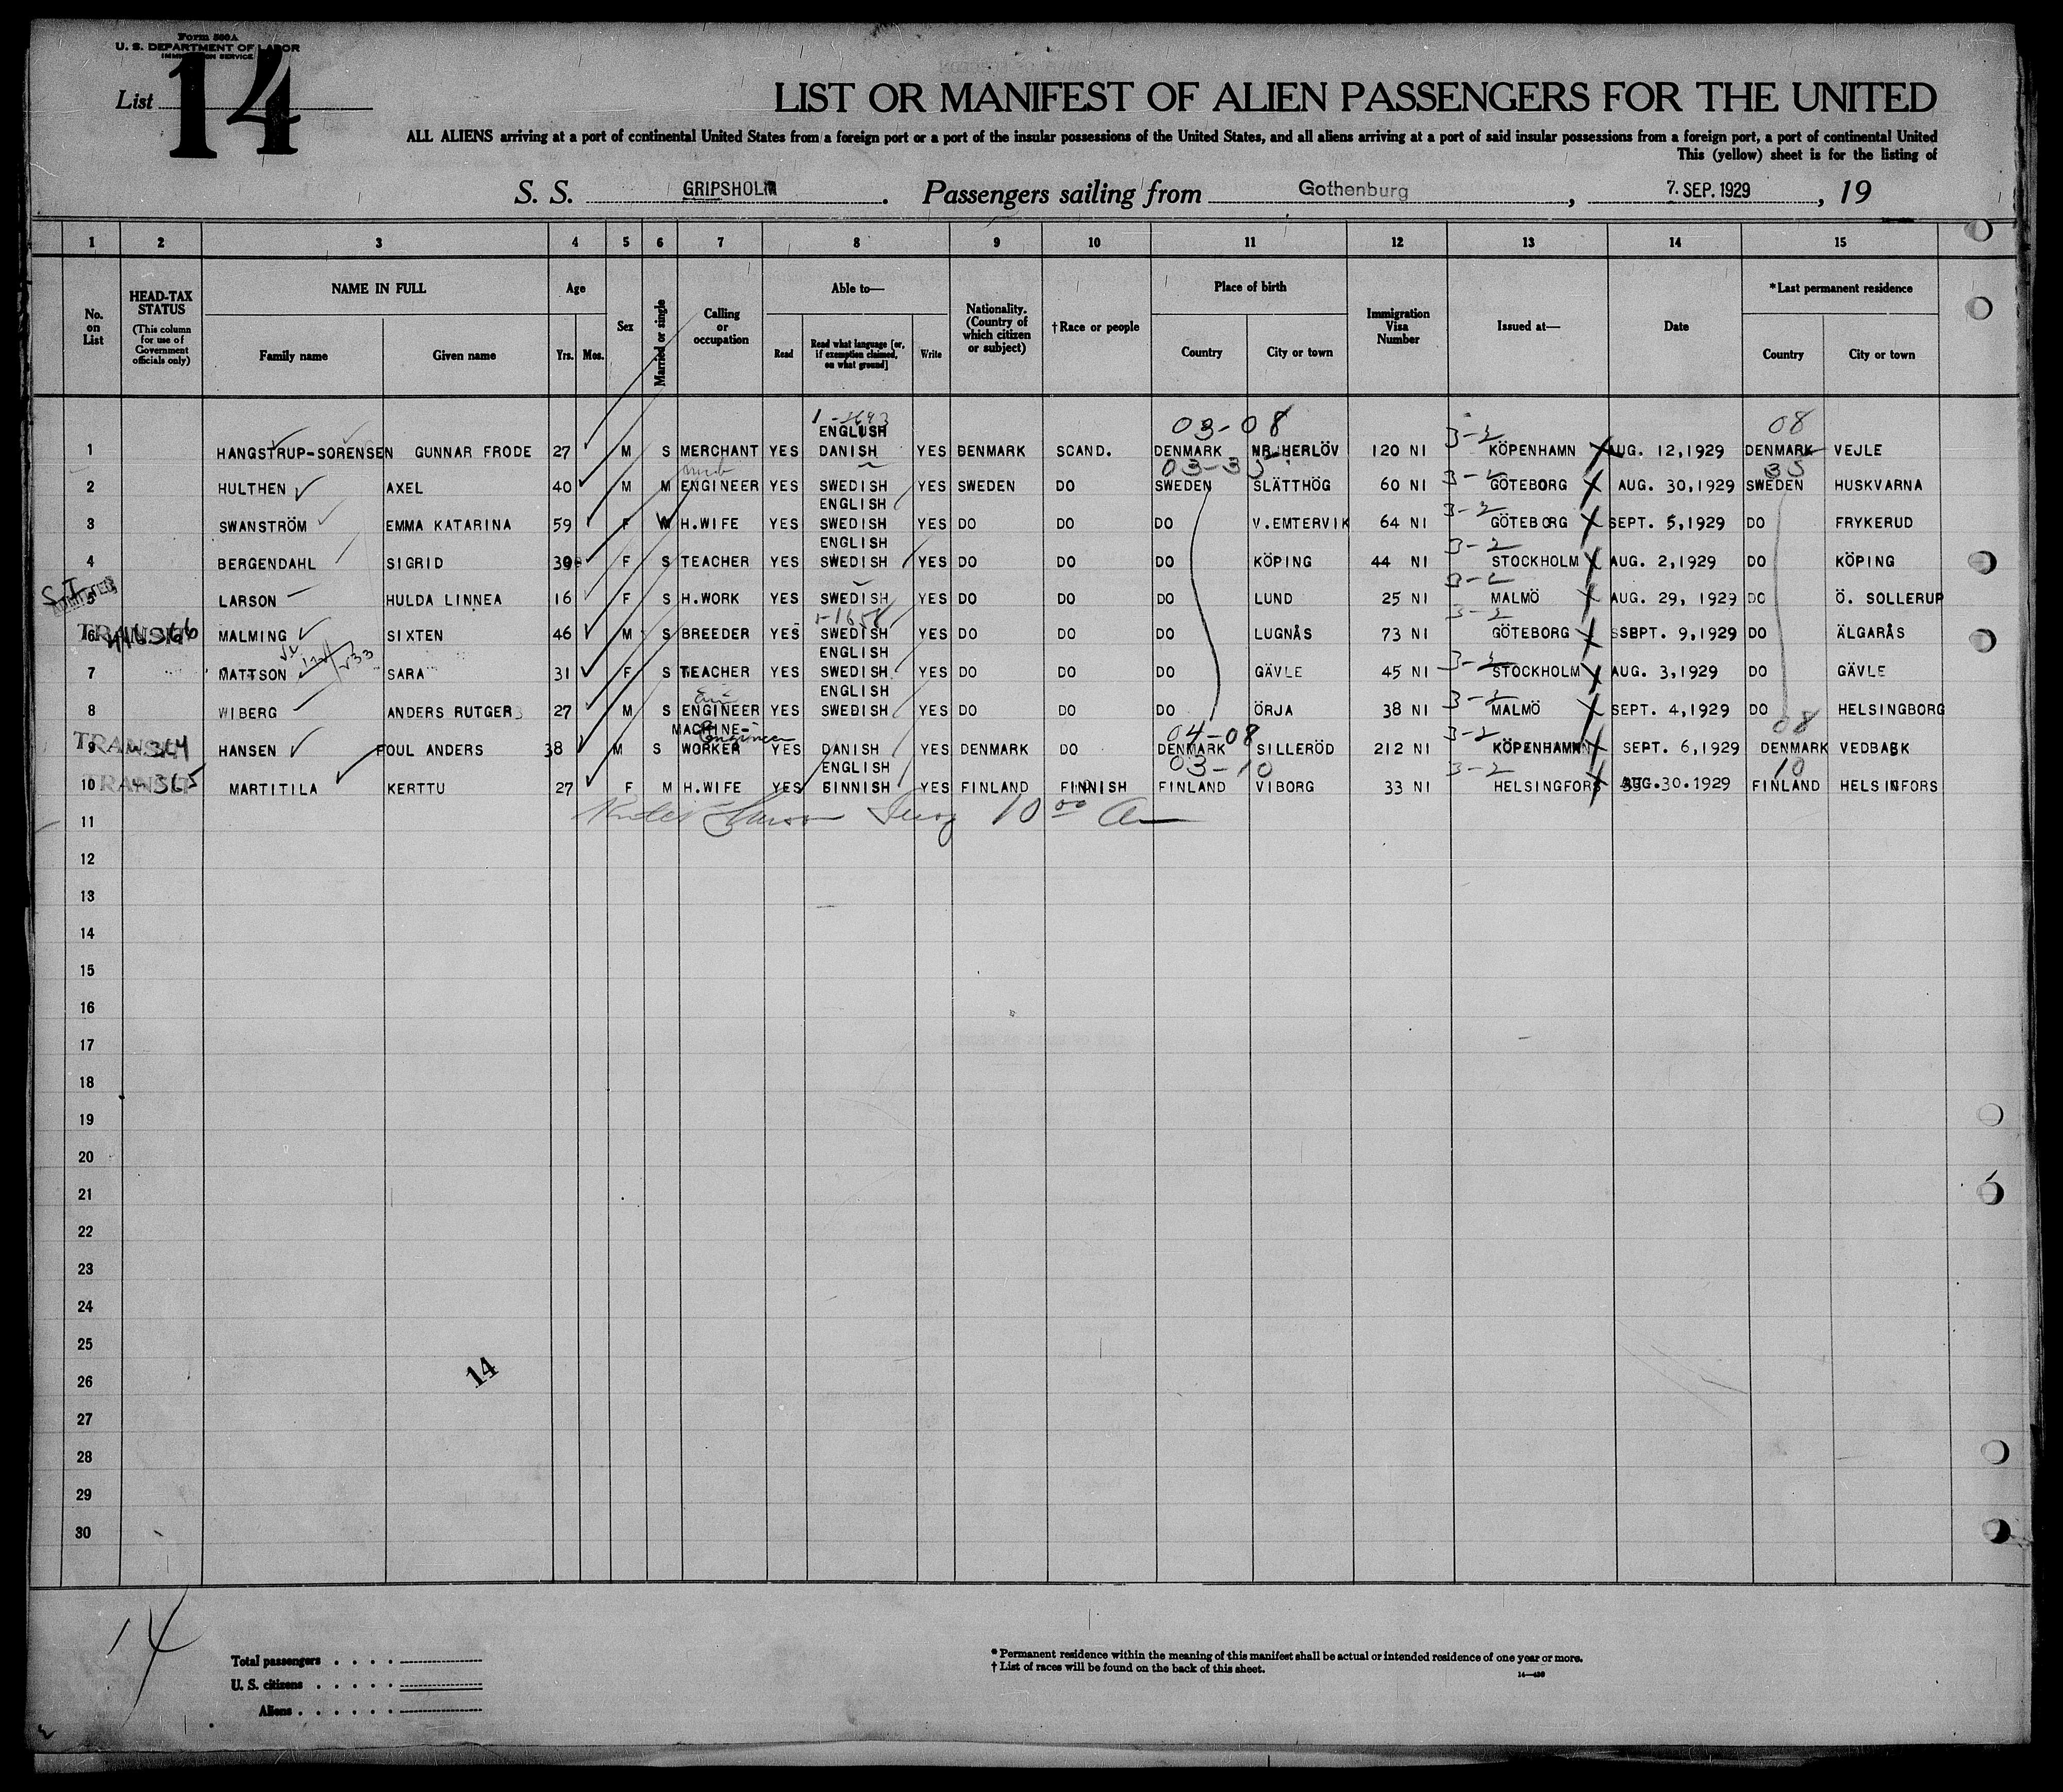 Form 500A
U. S. DEPARTMENT OF LABOR
IMMIGRATION SERVICE
List 14
LIST OR MANIFEST OF ALIEN PASSENGERS FOR THE UNITED
ALL ALIENS arriving at a port of continental United States from a foreign port or a port of the insular possessions of the United States, and all aliens arriving at a port of said insular possessions from a foreign port, a port of continental United
This (yellow) sheet is for the listing of
S. S. GRIPSHOLM. Passengers sailing from Gothenburg, 7. SEP. 1929, 19
1 2 3 4 5 6 7 8 9 10 11 12 13 14 15
No. on List
HEAD-TAX STATUS (This column for use of Government officials only)
NAME IN FULL Family name Given name
Age Yrs. Mos.
Sex
Married or single
Calling or occupation
Able to— Read Read what language [or, if exemption claimed, on what ground] Write
Nationality. (Country of which citizen or subject)
†Race or people
Place of birth Country City or town
Immigration Visa Number
Issued at—
Date
*Last permanent residence Country City or town
03-08 08
ENGLUSH
1 HANGSTRUP-SORENSEN GUNNAR FRODE 27 M S MERCHANT YES DANISH YES BENMARK SCAND. DENMARK NR.HERLÖV 120 NI 3-2 KÖPENHAMN AUG. 12,1929 DENMARK VEJLE
03-35 35
2 HULTHEN AXEL 40 M M ENGINEER YES SWEDISH YES SWEDEN DO SWEDEN SLÄTTHÖG 60 NI 3-2 GÖTEBORG AUG. 30,1929 SWEDEN HUSKVARNA
ENGLISH
3 SWANSTRÖM EMMA KATARINA 59 F W H.WIFE YES SWEDISH YES DO DO DO V.EMTERVIK 64 NI 3-2 GÖTEBORG SEPT. 5,1929 DO FRYKERUD
ENGLISH
4 BERGENDAHL SIGRID 39 F S TEACHER YES SWEDISH YES DO DO DO KÖPING 44 NI 3-2 STOCKHOLM AUG. 2,1929 DO KÖPING
S.I. ADMITTED
5 LARSON HULDA LINNEA 16 F S H.WORK YES SWEDISH YES DO DO DO LUND 25 NI 3-2 MALMÖ AUG. 29, 1929 DO Ö. SOLLERUP
TRANSIT
6 MALMING SIXTEN 46 M S BREEDER YES SWEDISH YES DO DO DO LUGNÅS 73 NI 3-2 GÖTEBORG SSBPT. 9,1929 DO ÄLGARÅS
ENGLISH
7 MATTSON SARA 31 F S TEACHER YES SWEDISH YES DO DO DO GÄVLE 45 NI 3-2 STOCKHOLM AUG. 3,1929 DO GÄVLE
ENGLISH
8 WIBERG ANDERS RUTGER 27 M S ENGINEER YES SWEDISH YES DO DO DO ÖRJA 38 NI 3-2 MALMÖ SEPT. 4,1929 DO HELSINGBORG
MACHINE- Engineer 04-08 08
TRANSIT 364
9 HANSEN FOUL ANDERS 38 M S WORKER YES DANISH YES DENMARK DO DENMARK SILLERÖD 212 NI 3-2 KÖPENHAMN SEPT. 6,1929 DENMARK VEDBAEK
ENGLISH 03-10 10
TRANSIT 365
10 MARTITILA KERTTU 27 F M H.WIFE YES FINNISH YES FINLAND FINNISH FINLAND VIBORG 33 NI 3-2 HELSINGFORS AUG.30.1929 FINLAND HELSINGFORS
10 00
11
12
13
14
15
16
17
18
19
20
21
22
23
24
25
26
27
28
29
30
14
14
Total passengers
U. S. citizens
Aliens
* Permanent residence within the meaning of this manifest shall be actual or intended residence of one year or more.
† List of races will be found on the back of this sheet.